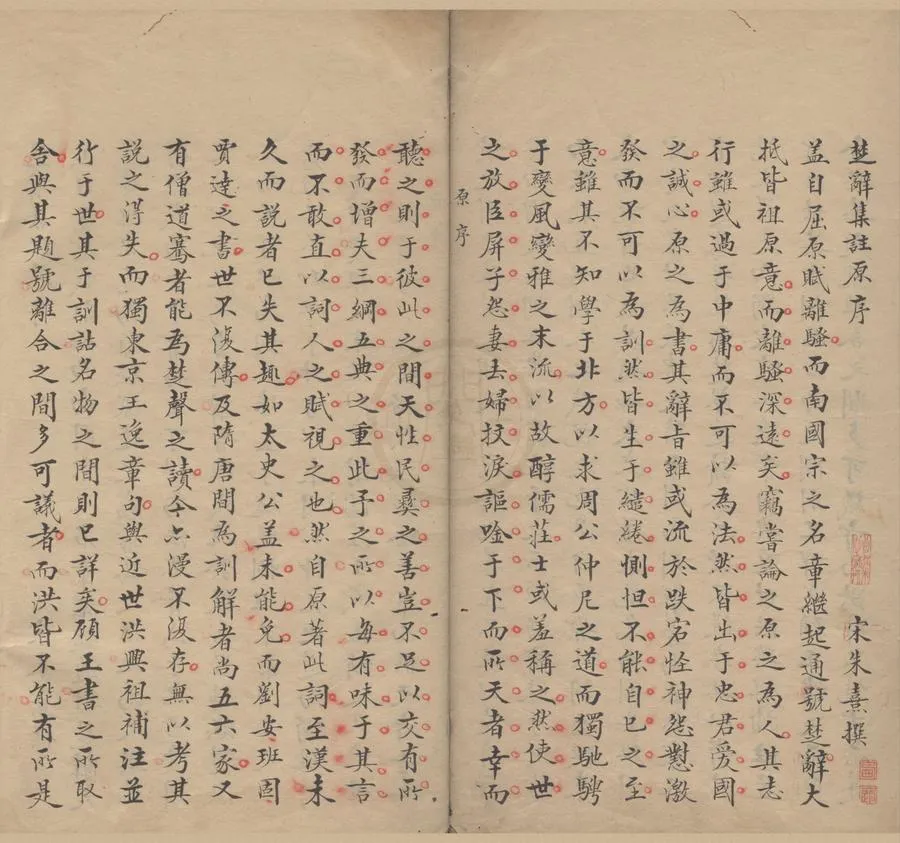 楚辭集註原序
宋朱熹撰
蓋自屈原賦離騷而南國宗之名章繼起通號楚辭大
抵皆祖原意而離騷深遠矣竊嘗論之原之為人其志
行雖或過于中庸而不可以為法然皆出于忠君爱國
之誠心原之為書其辭旨雖或流於跌宕怪神怨懟激
發而不可以為訓然皆生于繾綣惻怛不能自已之至
意雖其不知學于北方以求周公仲尼之道而獨馳騁
于變風變雅之末流以故醇儒莊士或羞稱之然使世
之放臣屏子怨妻去婦抆淚謳唫于下而所天者幸而
原序
聽之則于彼此之間天性民彝之善豈不足以交有所
發而增夫三綱五典之重此予之所以每有味于其言
而不敢直以詞人之賦視之也然自原著此詞至漢未
久而說者已失其趣如太史公盖未能免而劉安班固
賈逵之書世不復傳及隋唐間為訓解者尚五六家又
有僧道騫者能為楚聲之讀今亦漫不復存無以考其
說之得失而獨東京王逸章句與近世洪興祖補注並
行于世其于訓詁名物之間則已詳矣顧王書之所取
舍與其題號離合之間多可議者而洪皆不能有所是